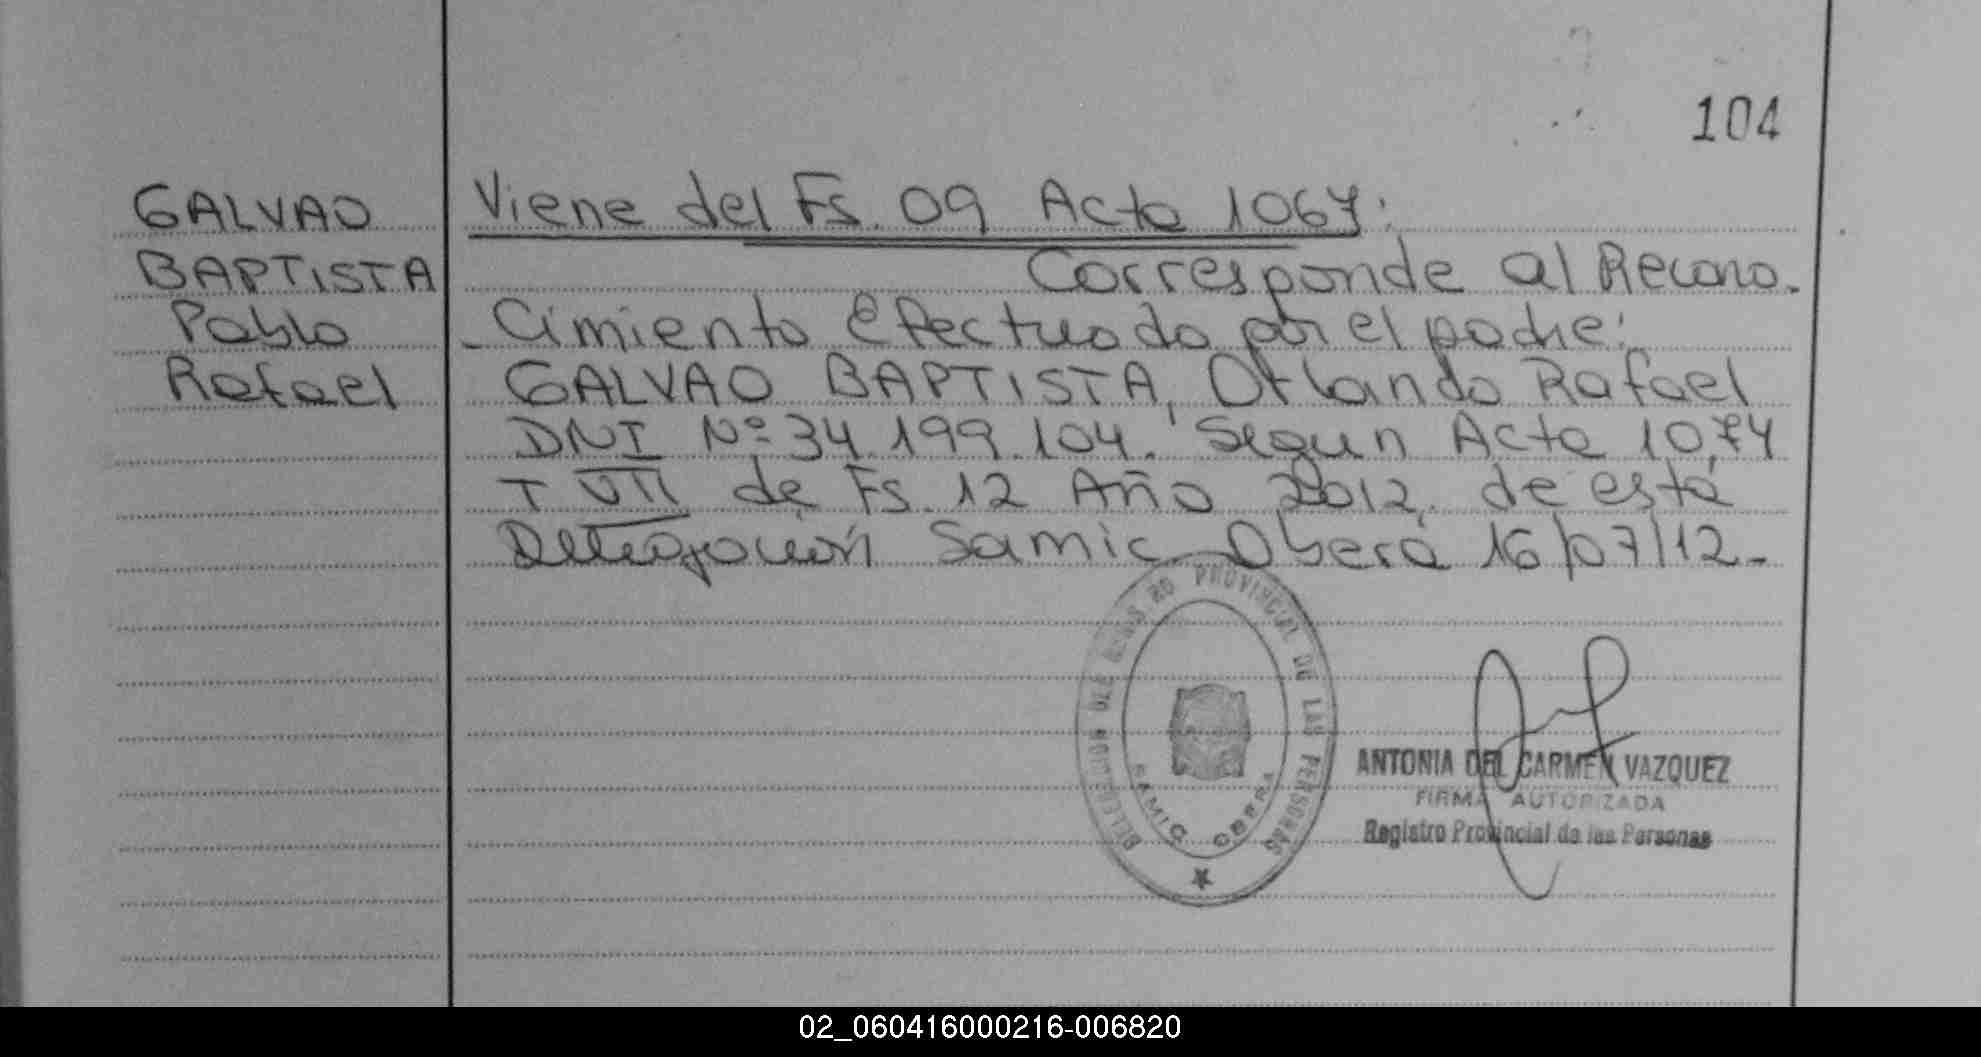 104
GALVAO
BAPTISTA
Pablo
Rafael
Viene del Fs. 09 Acta 1067:
Corresponde al Recono.
- Cimiento Efectuado por el padre:
GALVAO BAPTISTA, Orlando Rafael
DNI Nº 34.199.104. Segun Acta 1074
T VII de Fs. 12 Año 2012. de está
Delegación Samic Oberá 16/07/12-
PROVINCIAL DE LAS PERSONAS
SAMIC OBERA
ANTONIA DEL CARMEN VAZQUEZ
FIRMA AUTORIZADA
Registro Provincial de las Personas
02_060416000216-006820